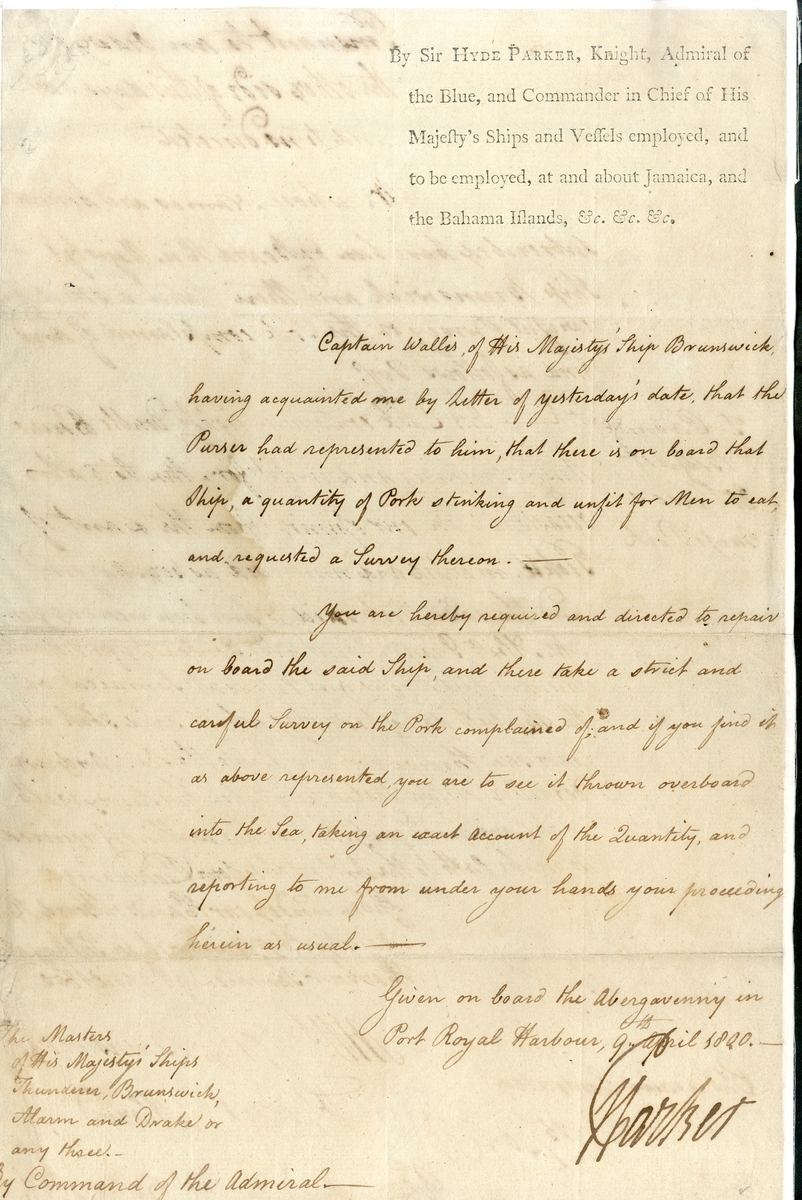 By Sir HYDE PARKER, Knight, Admiral of
the Blue, and Commander in Chief of His
Majeſty's Ships and Veſſels employed, and
to be employed, at and about Jamaica, and
the Bahama Iſlands, &c. &c. &c.
Captain Wallis, of His Majesty's Ship Brunswick,
having acquainted me by Letter of yesterday's date, that the
Purser had represented to him, that there is on board that
Ship, a quantity of Pork stinking and unfit for Men to eat,
and requested a Survey thereon. —
You are hereby required and directed to repair
on board the said Ship, and there take a strict and
careful Survey on the Pork complained of; and if you find it
as above represented, you are to see it thrown overboard
into the Sea, taking an exact Account of the Quantity, and
reporting to me from under your hands your proceeding
herein as usual. —
Given on board the Abergavenny in
Port Royal Harbour, 9th April 1800. —
HParker
The Masters
of His Majesty's Ships
Thunderer, Brunswick,
Alarm and Drake or
any three. –
By Command of the Admiral. —